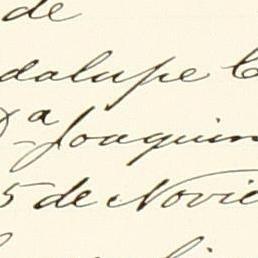 de
dalupe C
Dª Joaquin
5 de Novie